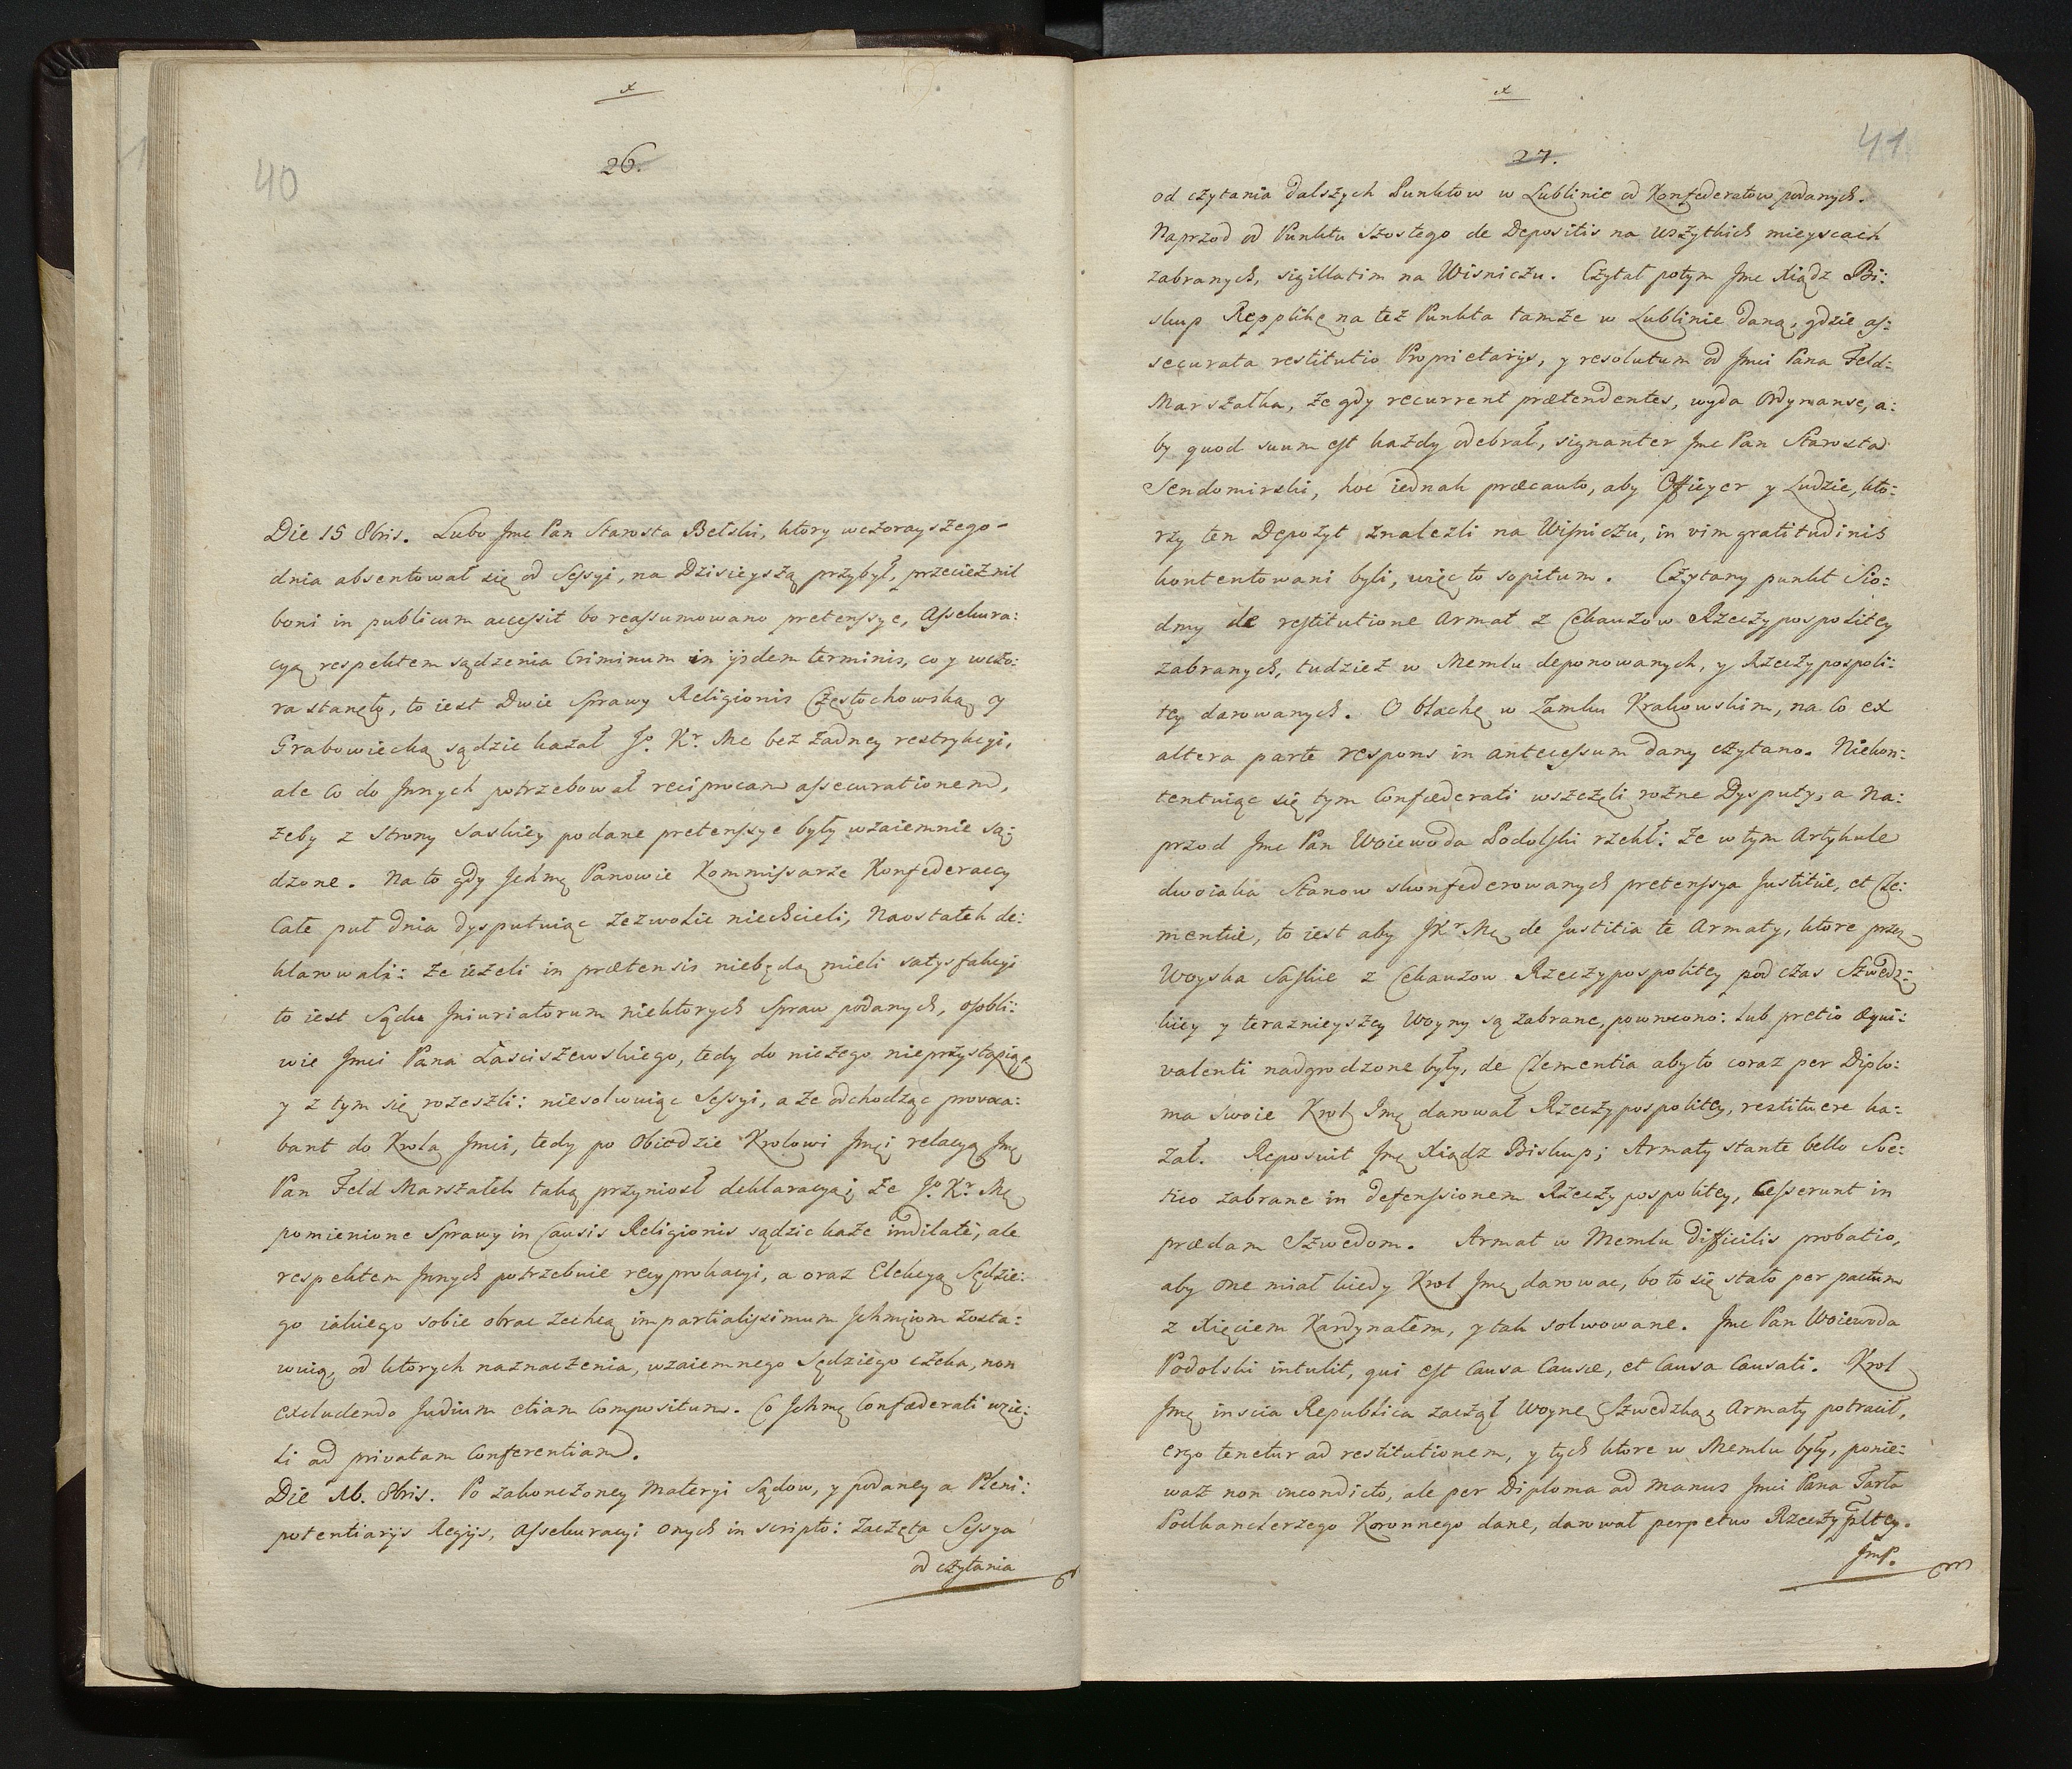 x
26.
40
Die 15 8bris. Lubo Jmc Pan Starosta Bełski, ktory wczorayszego
dnia absentował się od Sessyi, na Dzisieyszą przybył, przecież nil
boni in publicum accessit bo reassumowano pretensye, Assekura:
cyą respektem sądzenia Criminum in ijsdem terminis, co y wczo:
ra stanęło, to iest Dwie Sprawy Religionis Częstochowską y
Grabowiecką sądzić kazał J.º Kr. Mc bez żadney restrykcyi,
ale co do Jnnych potrzebował reciprocam assecurationem,
żeby z strony Saskiey podane pretensye były wzaiemnie są:
dzone. Na to gdy Jchmę Panowie Kommissarze Konfederaccy
Całe puł dnia dysputuiąc zezwolić niechcieli, Naostatek de:
klarowali: że ieżeli in prætensis niebędą mieli satysfakcyi
to iest Sądu Jniuriatorum niektorych Spraw podanych, osobli:
wie Jmci Pana Łasciszewskiego, tedy do niczego nieprzystąpiąc
y z tym się rozeszli: niesolwuiąc Sessyi, a że odchodząc provoca:
bant do Krola Jmci, tedy po Obiedzie Krolowi Jmęi relacyą Jmę
Pan Feld Marszałek taką przyniosł deklaracyą; że J.º Kr. Mę
pomienione Sprawy in Causis Religionis sądzić każe indilatè, ale
respektem Jnnych potrzebuie recyprokacyi, a oraz Elekcyą Sędzie:
go iakiego sobie obrac zechcą impartialissimum Jchmęiom zosta:
wuią, od ktorych naznaczenia, wzaiemnego Sędziego czeka, non
excludendo Judium etiam Compositum. Co Jchmę Confæderati wzie:
li ad privatam Conferentiam.
Die 16. 8bris. Po zakonczoney Materyi Sądow, y podaney a Pleni:
potentiarijs Regijs, Assekuracyi onych in scripto: Zaczęta Sessya
od czytania
x
27.
41
od czytania dalszych Punktow w Lublinie od Konfederatow podanych.
Naprzod od Punktu Szostego de Depositis na wszytkich mieyscach
zabranych, sigillatim na Wisniczu. Czytał potym Jmc Xiądz Bi:
skup Repplikę na też Punkta tamże w Lublinie daną, gdzie as:
securata restitutio Proprietarijs, y resolutum od Jmci Pana Feld:
Marszałka, że gdy recurrent prætendentes, wyda Ordynanse, a:
by quod suum est każdy odebrał, signanter Jmc Pan Starosta
Sendomirski, hoc iednak præcauto, aby Officyer y Ludzie, kto:
rzy ten Depozyt znalezli na Wisniczu, in vim gratitudinis
kontentowani byli, więc to sopitum. Czytany punkt Sio:
dmy de restitutione Armat z Cekauzow Rzeczypospolitey
zabranych, tudziez w Memlu deponowanych, y Rzeczypospoli:
tey darowanych. O blachę w Zamku Krakowskim, na co ex
altera parte respons in antecessum dany czytano. Niekon:
tentuiąc się tym Confæderati wszczęli rożne Dysputy, a Na:
przod Jmc Pan Woiewoda Podolski rzekł: że w tym Artykule
dwoiaka Stanow skonfederowanych pretensya Justitiæ, et Cle:
mentiæ, to iest aby JKr Mę de Justitia te Armaty, ktore przez
Woyska Saskie z Cekauzow Rzeczypospolitey podczas Szwedz:
kiey y teraznieyszey Woyny są zabrane, powrocono: lub pretio æqui:
valenti nadgrodzone były, de Clementia aby to coraz per Diplo:
ma swoie Krol Jmę darował Rzeczypospolitey, restituere ka:
zał. Reposuit Jmę Xiądz Biskup; Armaty stante bello Sue:
tico zabrane in defensionem Rzeczypospolitey, Cesserunt in
prædam Szwedom. Armat w Memlu difficilis probatio,
aby one miał kiedy Krol Jmę darowac, bo to się stało per pactum
z Xięciem Kardynałem, y tak solwowane. Jmc Pan Woiewoda
Podolski intulit, qui est Causa Causæ, et Causa Causati. Krol
Jmę inscia Republica zaczął Woynę Szwedzką, Armaty potracił,
ergo tenetur ad restitutionem, y tych ktore w Memlu były, ponie:
waż non incondicto, ale per Diploma ad manus Jmci Pana Tarła
Podkanclerzego Koronnego dane, darował perpetuo Rzeczypltey.
JmP.